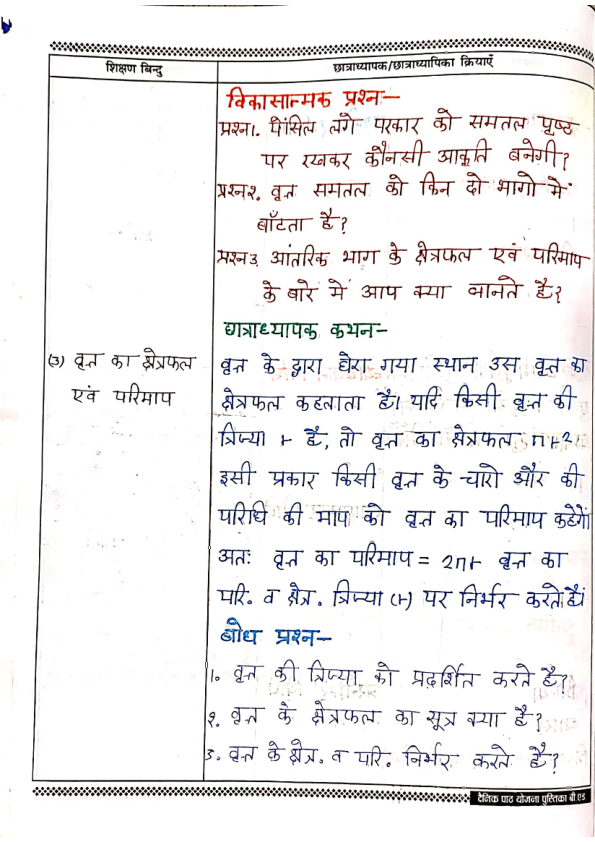 शिक्षण बिन्दु
छात्राध्यापक/छात्राध्यापिका क्रियाएँ
विकासात्मक प्रश्न:–
प्रश्न1. पेंसिल लगे परकार को समतल पृष्ठ
पर रखकर कौनसी आकृति बनेगी?
प्रश्न२. वृत्त समतल को किन दो भागो में
बाँटता है?
प्रश्न३ आंतरिक भाग के क्षेत्रफल एवं परिमाप
के बारे में आप क्या जानते है?
छात्राध्यापक कथन–
(3) वृत्त का क्षेत्रफल
एवं परिमाप
वृत्त के द्वारा घेरा गया स्थान उस वृत्त का
क्षेत्रफल कहलाता है। यदि किसी वृत्त की
त्रिज्या r है, तो वृत्त का क्षेत्रफल πr²
इसी प्रकार किसी वृत्त के चारो और की
परिधि की माप को वृत्त का परिमाप कहेगें।
अतः वृत्त का परिमाप = 2πr वृत्त का
परि. व क्षेत्र. त्रिज्या (r) पर निर्भर करते है।
बोध प्रश्न–
1. वृत्त की त्रिज्या को प्रदर्शित करते है?
२. वृत्त के क्षेत्रफल का सूत्र क्या है?
3. वृत्त के क्षेत्र. व परि. निर्भर करते है?
दैनिक पाठ योजना पुस्तिका बी.एड